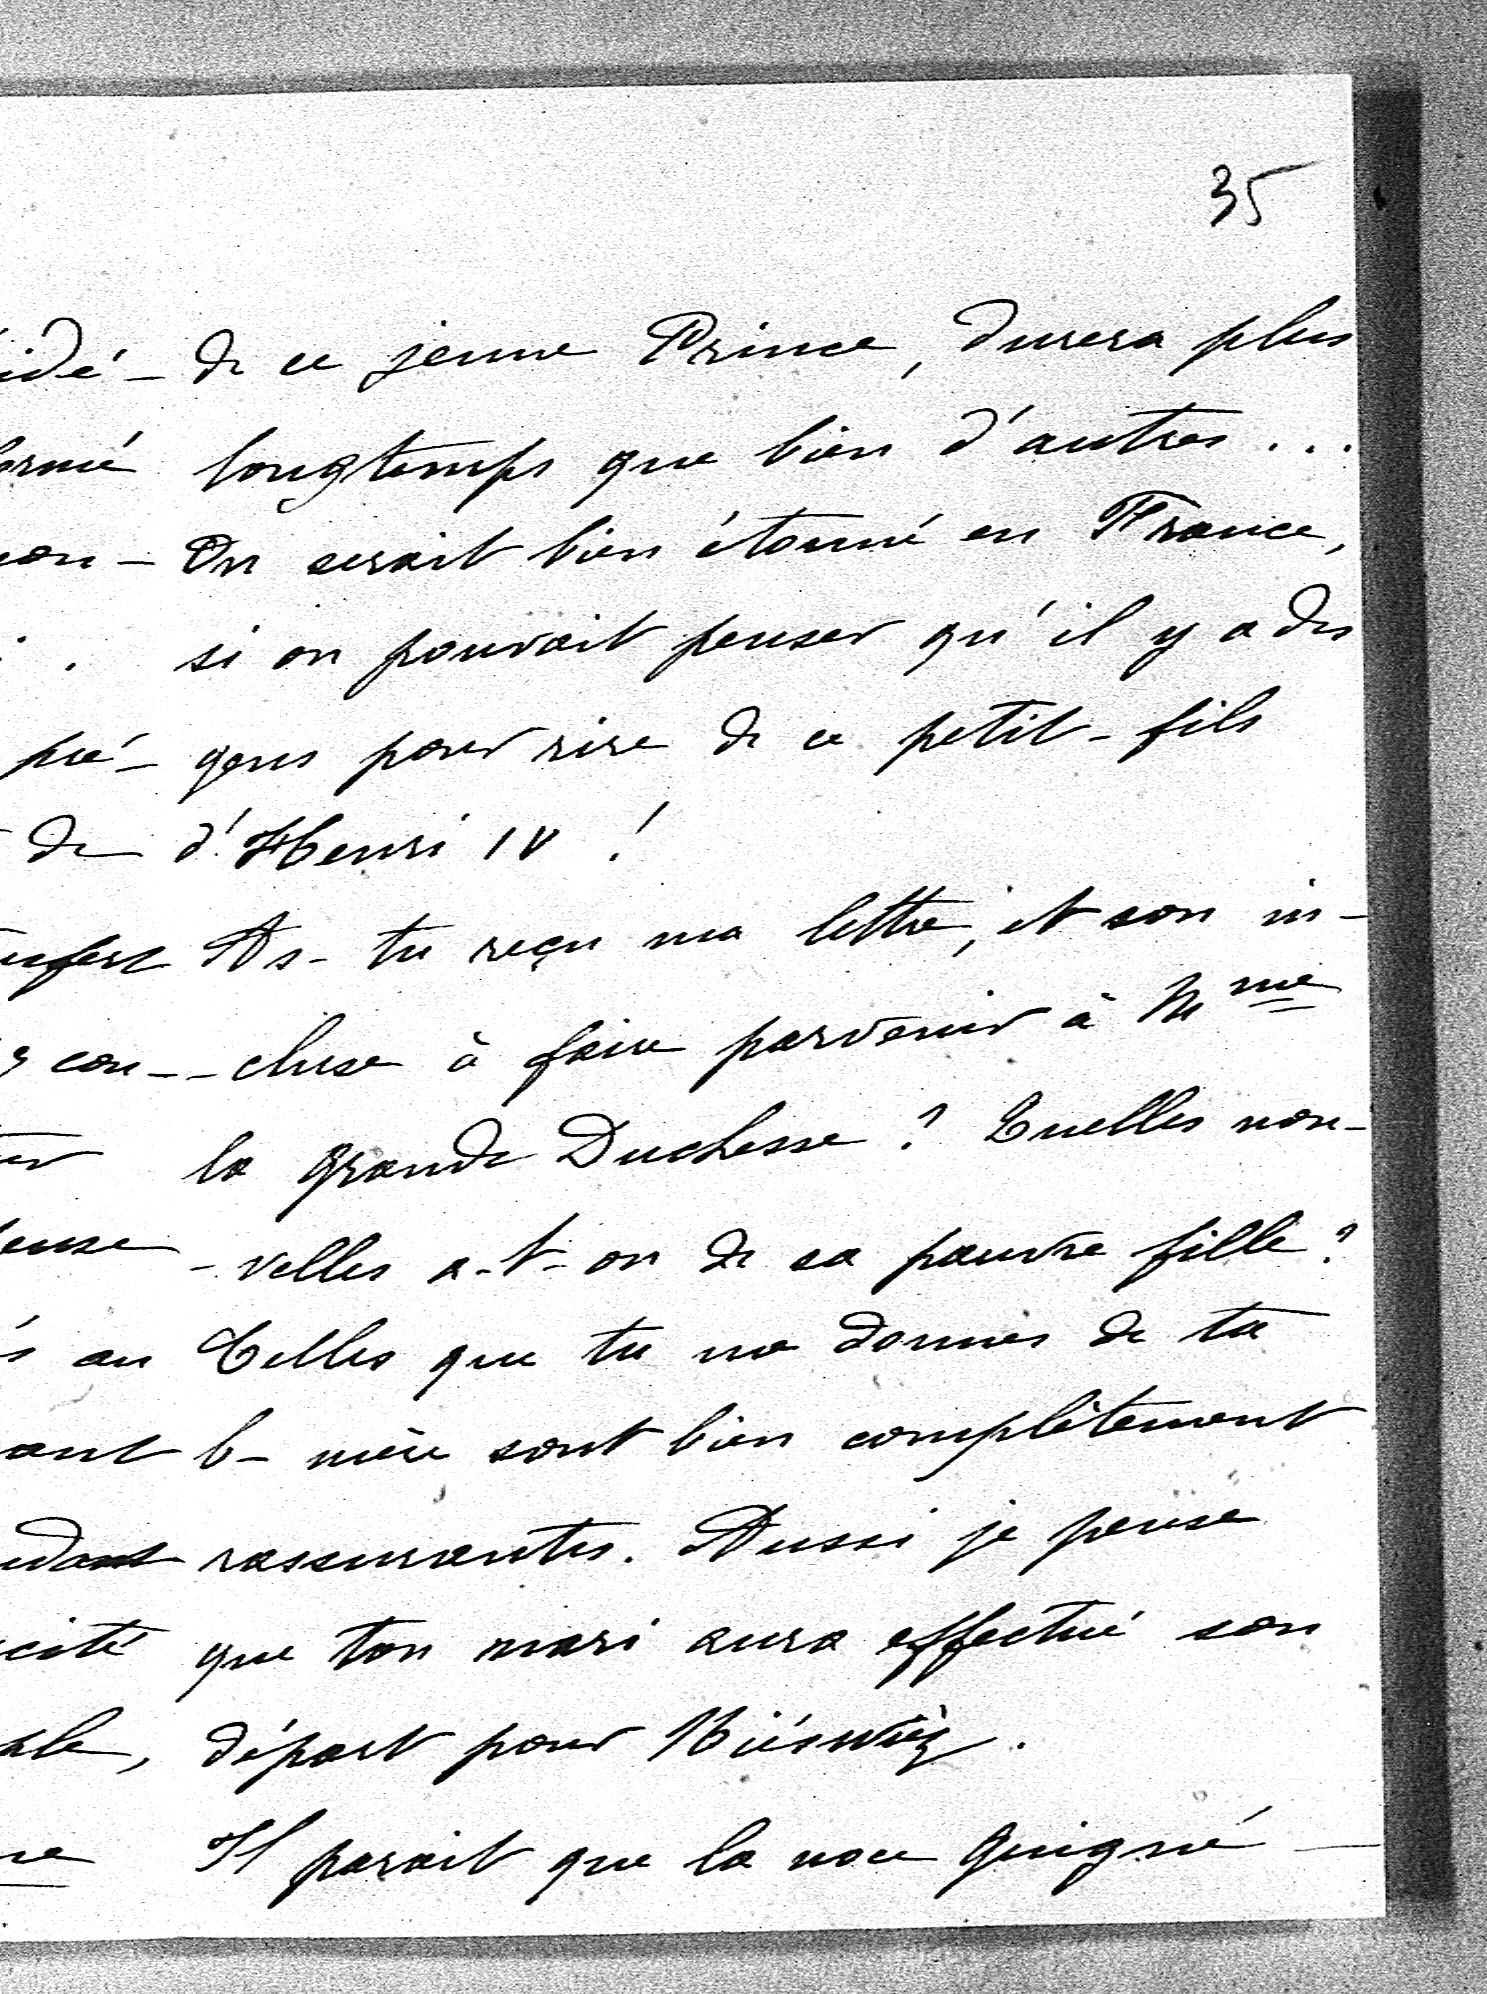 35
de ce jeune Prince, durera plus
longtemps que bien d'autres...
On serait bien étonné en France,
si on pouvait penser qu'il y a des
gens pour rire de ce petit-fils
d'Henri IV !
As-tu reçu ma lettre, et son in-
-cluse à faire parvenir à Mme
la grande Duchesse ? Quelles nou-
-velles a-t-on de sa pauvre fille ?
Celles que tu me donnes de ta
b-mère sont bien complètement
rassurantes. Aussi je pense
que ton mari aura effectué son
départ pour Niéswiéz.
Il parait que la noce Guigné